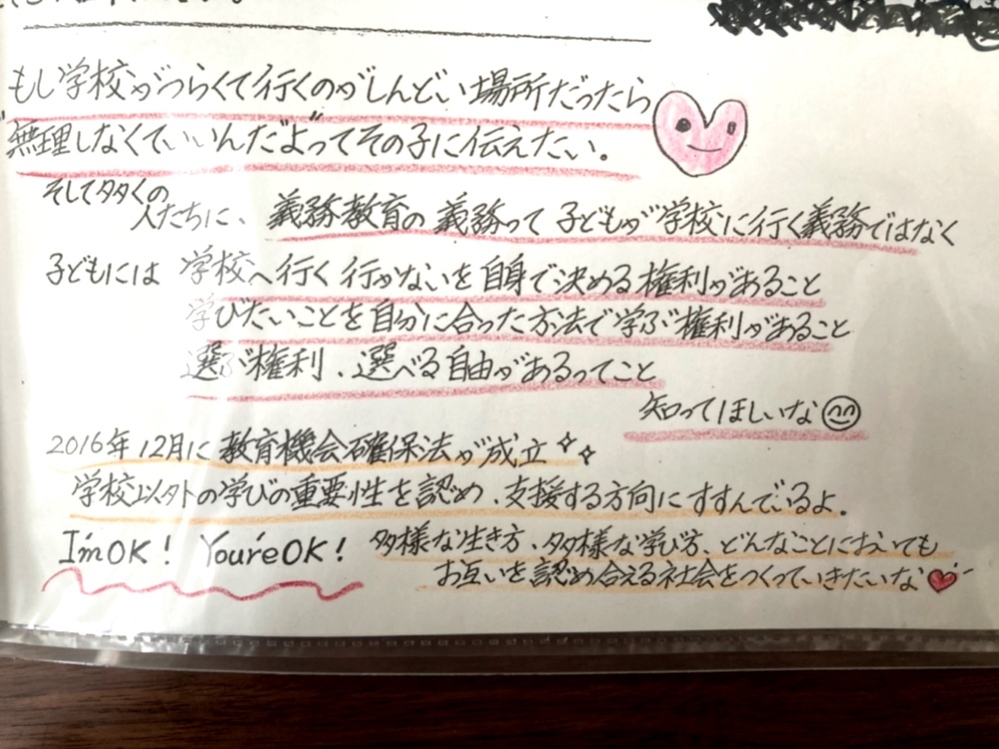 もし学校がつらくて行くのがしんどい場所だったら
"無理しなくていいんだよ"ってその子に伝えたい。
そして多くの
人たちに、義務教育の義務って子どもが学校に行く義務ではなく
子どもには 学校へ行く 行かないを自身で決める権利があること
学びたいことを自分に合った方法で学ぶ権利があること
選ぶ権利、選べる自由があるってこと
知ってほしいな
2016年12月に教育機会確保法が成立
学校以外の学びの重要性を認め、支援する方向にすすんでいるよ。
I'm OK! You're OK! 多様な生き方、多様な学び方、どんなことにおいても
お互いを認め合える社会をつくっていきたいな